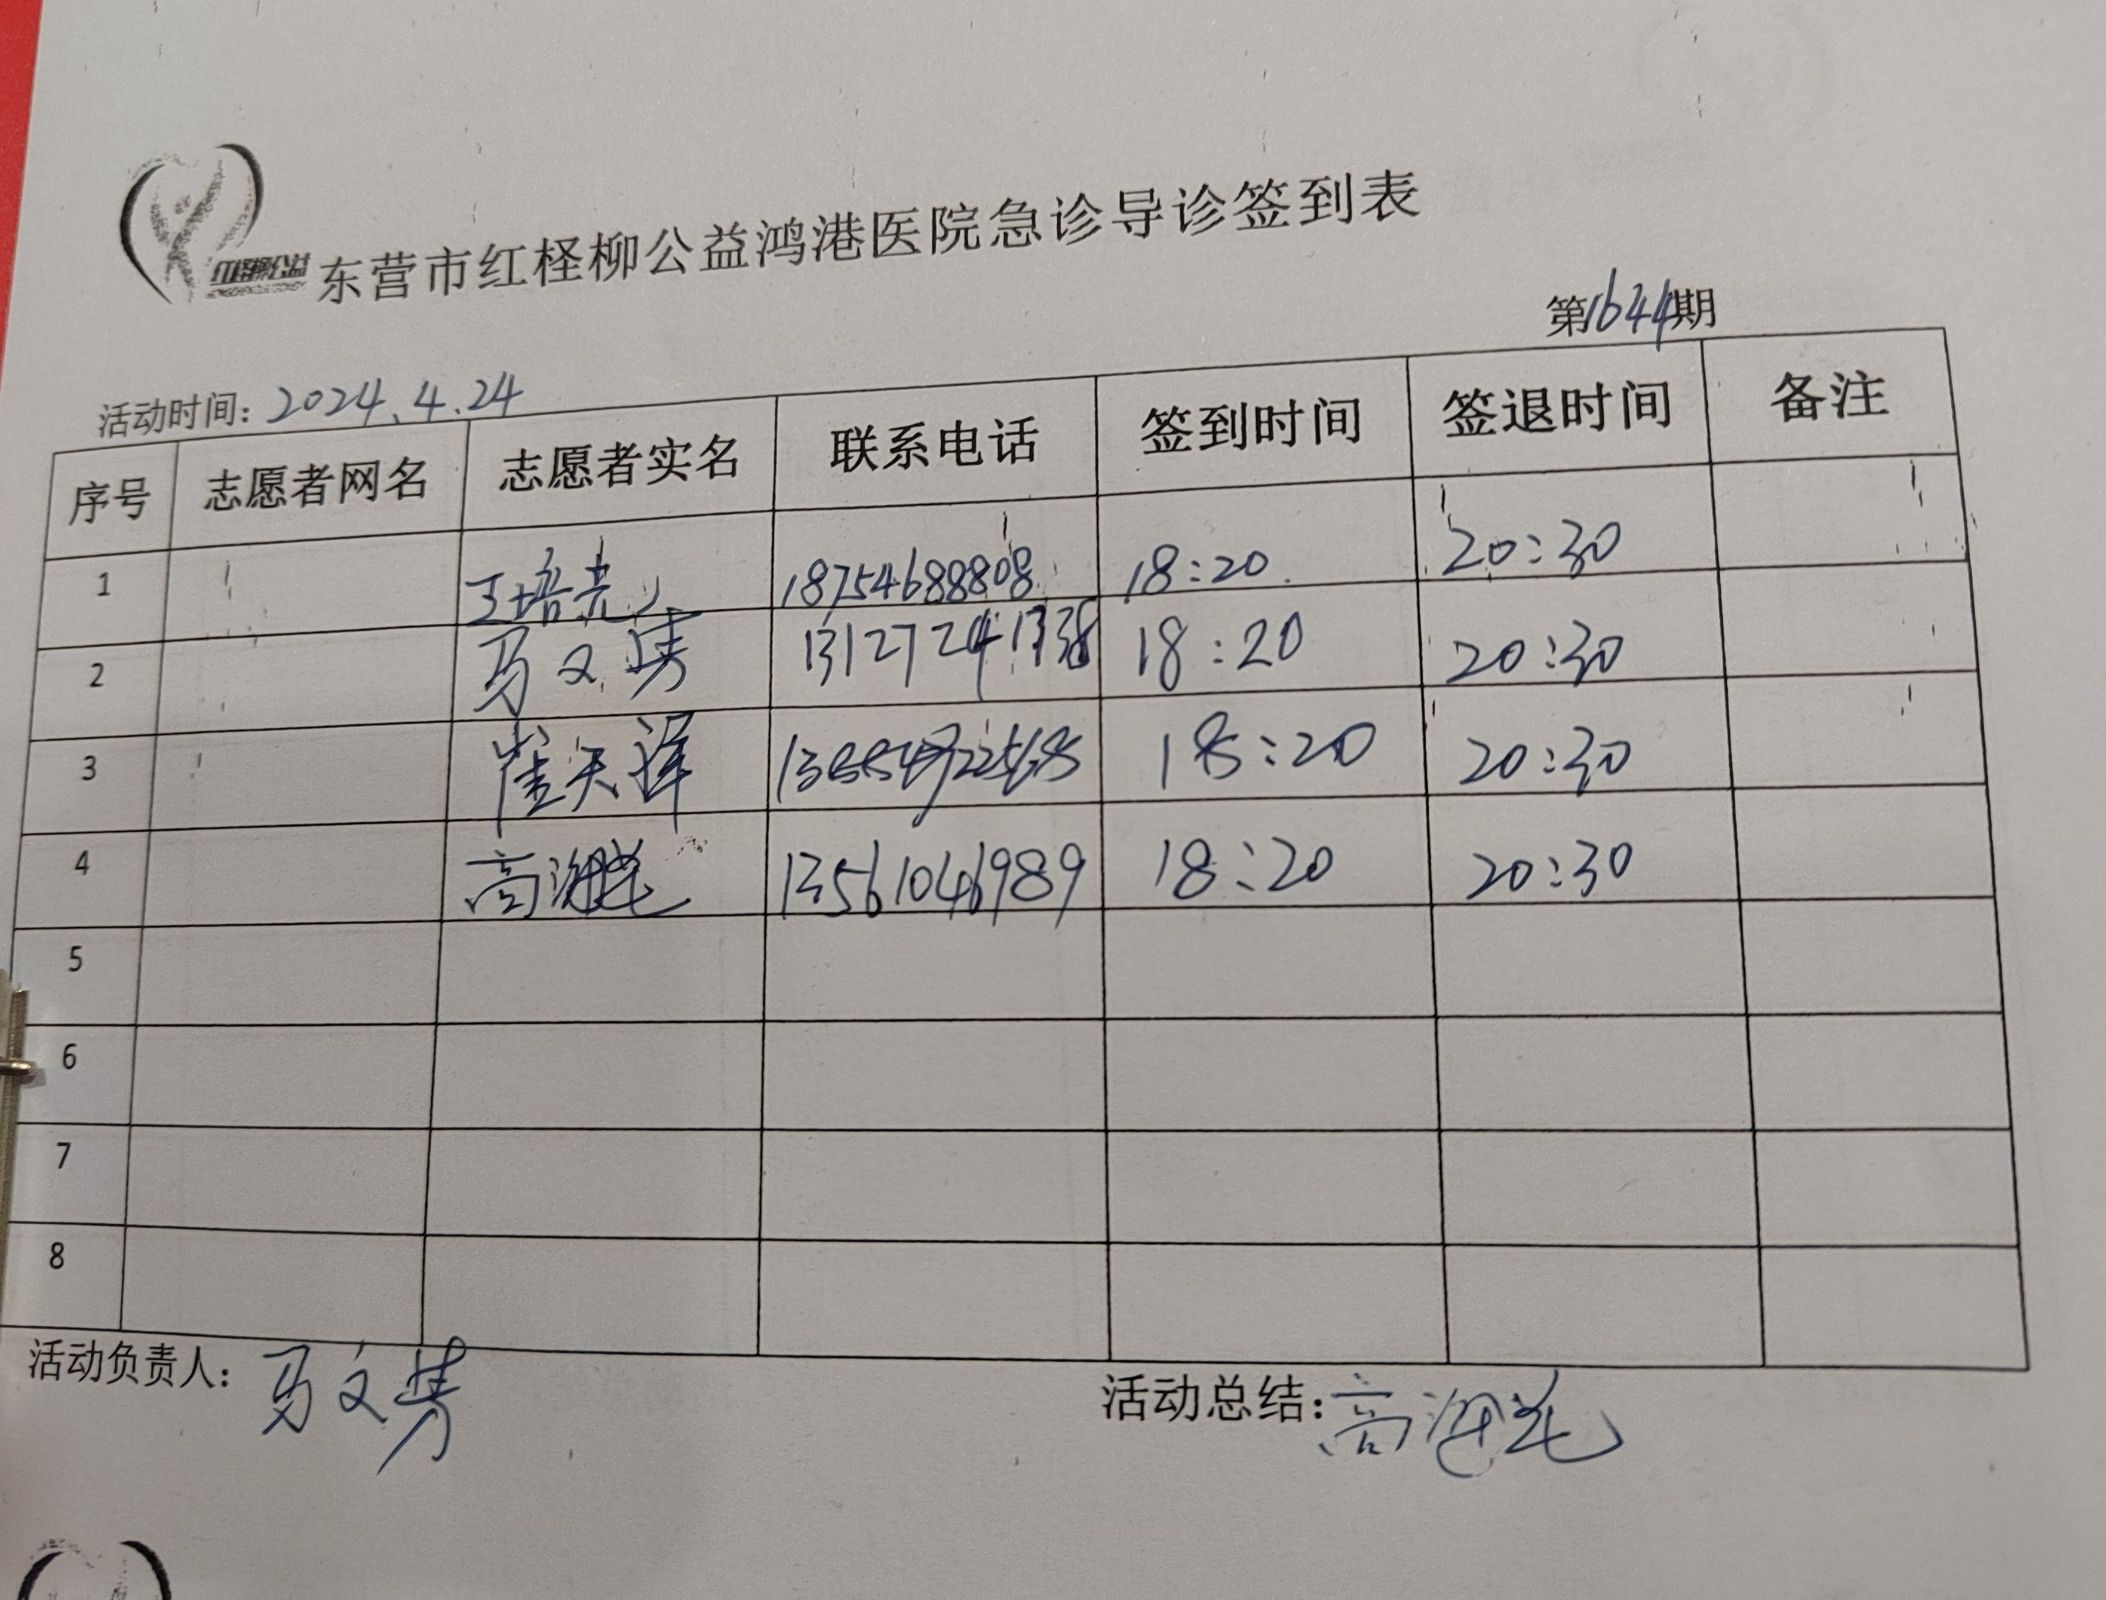 红柽柳公益
东营市红柽柳公益鸿港医院急诊导诊签到表
第1644期
活动时间: 2024.4.24
序号 志愿者网名 志愿者实名 联系电话 签到时间 签退时间 备注
1 王培尧 18754688808 18:20 20:30
2 马文隽 18:20 20:30
3 崔天泽 18:20 20:30
4 高 13561046989 18:20 20:30
5
6
7
8
活动负责人: 马文隽
活动总结: 高